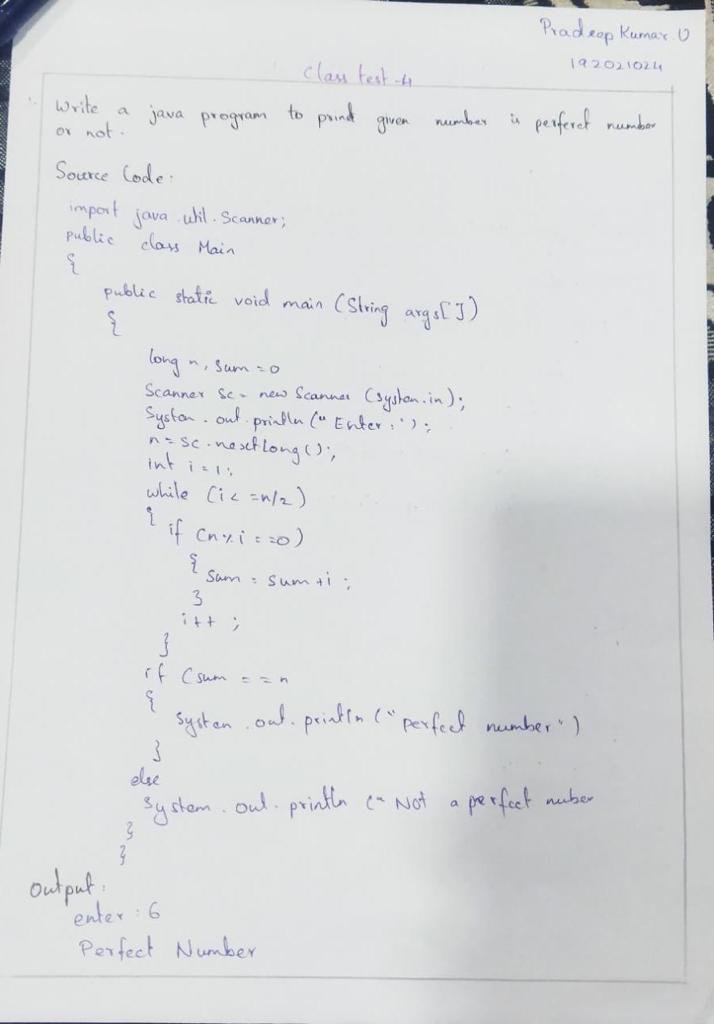 Pradeep Kumar. U
192021024
Class test-4
1. Write a java program to print given number is perferct number
or not.
Source Code:
import java.util.Scanner;
public class Main
{
public static void main (String args[])
{
long n, sum=0
Scanner sc= new Scanner (System.in);
System.out.println ("Enter:");
n=sc.nextLong();
int i=1;
while (i<=n/2)
{
if (n%i==0)
{
sum = sum+i;
}
i++;
}
if (sum == n
{
System.out.println ("perfect number")
}
else
System.out.println ("Not a perfect nuber
}
}
Output:
enter: 6
Perfect Number